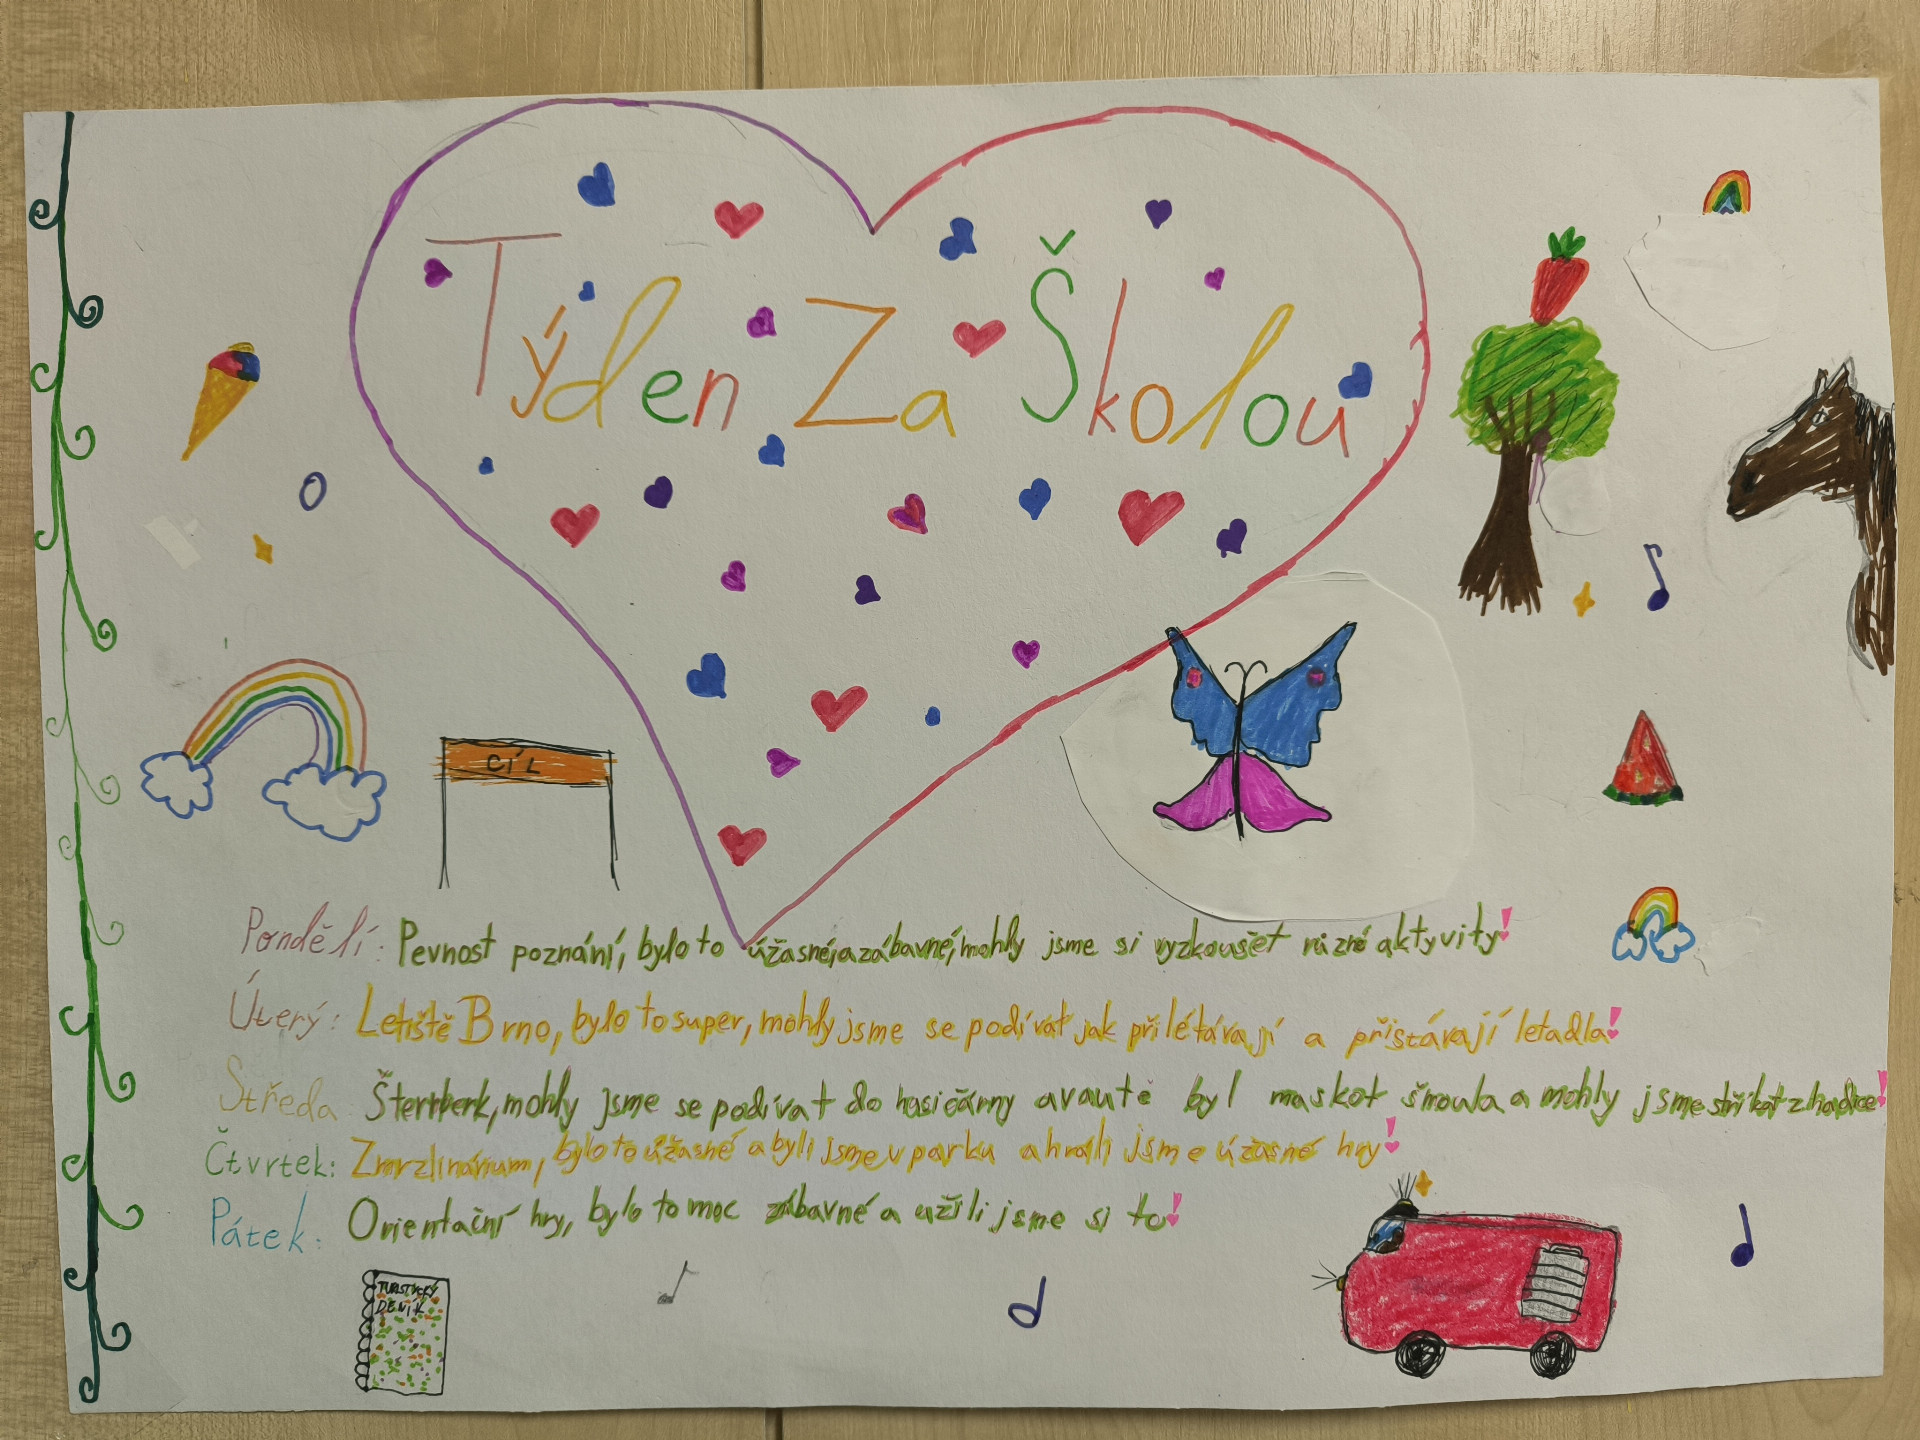 Týden Za Školou
CÍL
Pondělí: Pevnost poznání, bylo to úžasné, a zábavné, mohly jsme si vyzkoušet různé aktyvity!
Úterý: Letiště Brno, bylo to super, mohly jsme se podívat jak přilétávají a přistávají letadla!
Středa: Šternberk, mohly jsme se podívat do hasičárny a v autě byl maskot šmoula a mohly jsme stříkat z hadice!
Čtvrtek: Zmrzlinárium, bylo to úžasné a byli jsme v parku a hráli jsme úžasné hry!
Pátek: Orientační hry, bylo to moc zábavné a užili jsme si to!
TURISTICKÝ
DENÍK